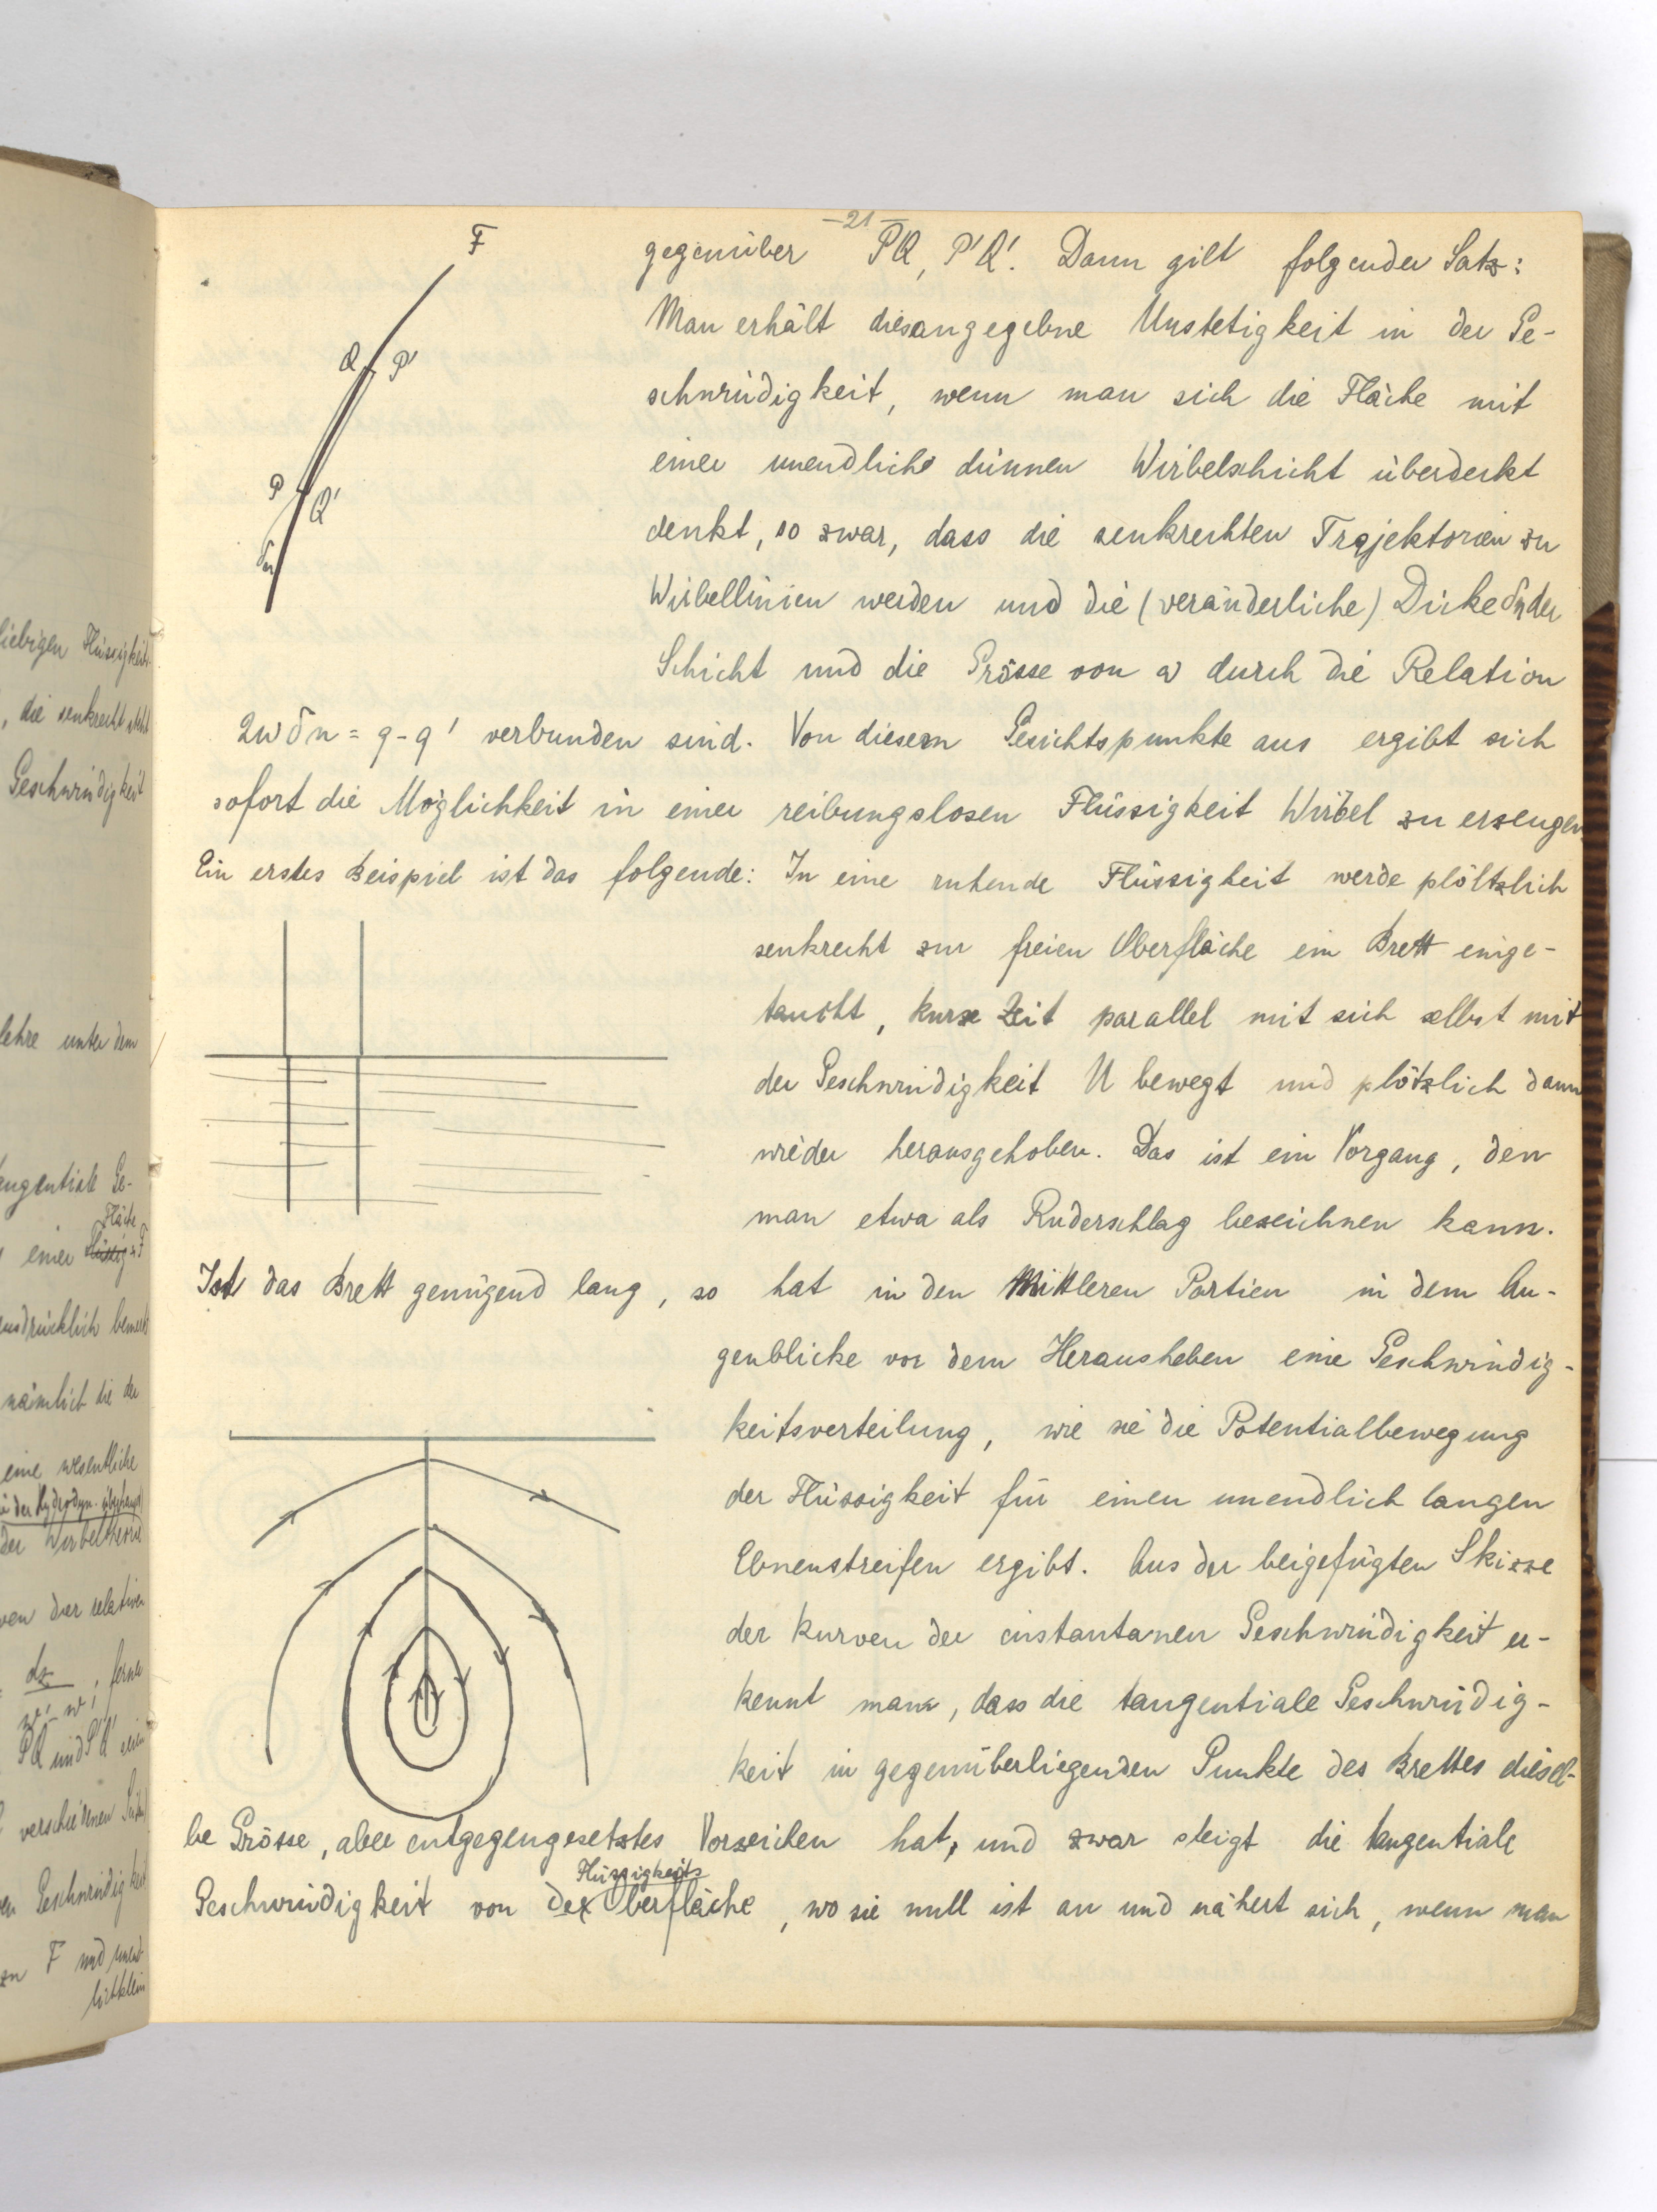 -21-
F
Q P'
P Q'
δn
gegenüber PQ, P'Q'. Dann gilt folgender Satz:
Man erhält diesangegebne Unstetigkeit in der Ge-
schwindigkeit, wenn man sich die Fläche mit
einer unendliche dünnen Wirbelschicht überdeckt
denkt, so zwar, dass die senkrechten Trajektorien zu
Wirbellinien werden und die (veränderliche) Dicke δn der
Schicht und die Grösse von ω durch die Relation
2ωδn = q - q' verbunden sind. Von diesem Gesichtspunkte aus ergibt sich
sofort die Möglichkeit in einer reibungslosen Flüssigkeit Wirbel zu erzeugen
Ein erstes Beispiel ist das folgende: In eine ruhende Flüssigkeit werde plöltzlich
senkrecht zur freien Oberfläche ein Brett einge-
taucht, kurze Zeit parallel mit sich selbst mit
der Geschwindigkeit U bewegt und plötzlich dann
wieder herausgehoben. Das ist ein Vorgang, den
man etwa als Ruderschlag bezeichnen kann.
Ist das Brett genügend lang, so hat in den Mittleren Partien in dem Au-
genblicke vor dem Herausheben eine Geschwindig-
keitsverteilung, wie sie die Potentialbewegung
der Flüssigkeit für einen unendlich langen
Ebnenstreifen ergibt. Aus der beigefügten Skizze
der Kurven der instantanen Geschwindigkeit er-
kennt man, dass die tangentiale Geschwindig-
keit in gegenüberliegenden Punkte des Brettes diesel-
be Grösse, aber entgegengesetztes Vorzeichen hat, und zwar steigt die tangentiale
Flüssigkeits
Geschwindigkeit von der Oberfläche, wo sie null ist an und nähert sich, wenn man
liebigen Flüssigkeit
, die senkrecht steht
Geschwindigkeit
lehre unter dem
tangentiale Ge-
Fläche
einer F
ausdrücklich bemerkt
nämlich die der
eine wesentliche
der Wirbeltheorie
der relativen
dz ; ferner
PQ und P'Q' einen
verschiednen
Geschwindigkeit
zu F und